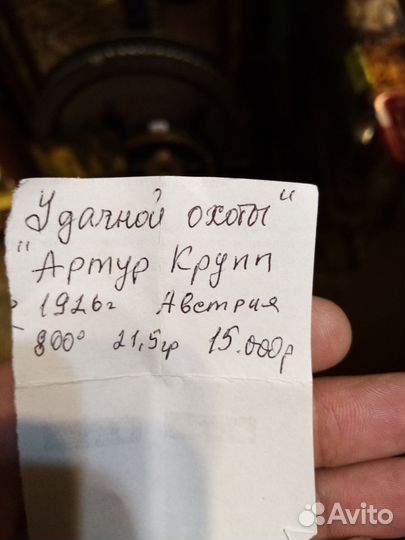 Удачной охоты"
"Артур Крупп
1926г Австрия
800° 21,5гр 15.000р
Avito